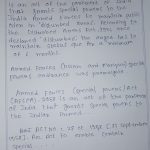 is an act of the parliament of
India that grants special powers to the
Indian Armed Forces to maintain public
order in "disturbed areas". According to
the Disturbed Areas Act, 1976 once
declared 'disturbed', the area has to
maintain status quo for a minimum
of 6 months.
Armed Forces (Assam and Manipur) special
powers ordinance was promulgated
Armed Forces (special powers) Act
(AFSPA), 1958 is an act of the parliament
of India that grants special powers to
the Indian Armed.
Act No. 28 of 1958 [11 september
1958] An Act to enable certain
special